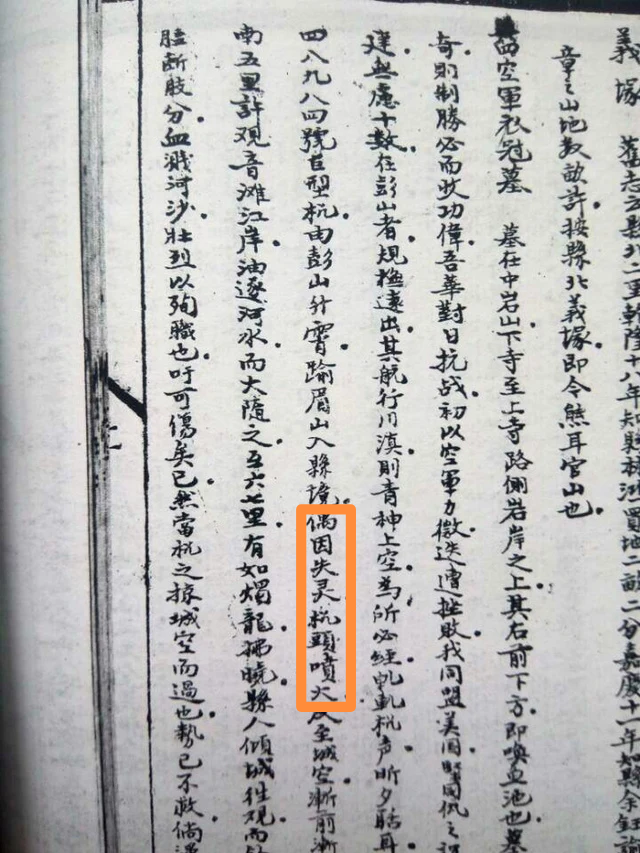 義塚　舊志云縣北二里乾隆十八年知縣林鴻買地二畝二分嘉慶十一年知縣余鈺諭
章之山地數畝許按縣北義塚即今熊耳官山也
空軍衣冠墓　墓在中岩山下寺至上寺路側岩岸之上其右前下方即喚魚池也墓
奇則制勝必而收功偉吾華對日抗战初以空軍力微迭遭挫敗我同盟美国
建無慮十數在彭山者規極遠出其航行川滇則青神上空為所必經軋軋杭声昕夕聒耳
四八九八四號巨型杭由彭山升霄踰眉山入縣境偶因失灵杭頭噴火及至城空漸前漸
南五里許观音滩江岸油逐河水而大隨之至六七里有如燭龍拂曉縣人傾城往观而
脰断肢分血溅河沙壮烈以殉職也吁可傷矣已然當杭之掠城空而過也勢已不救倘